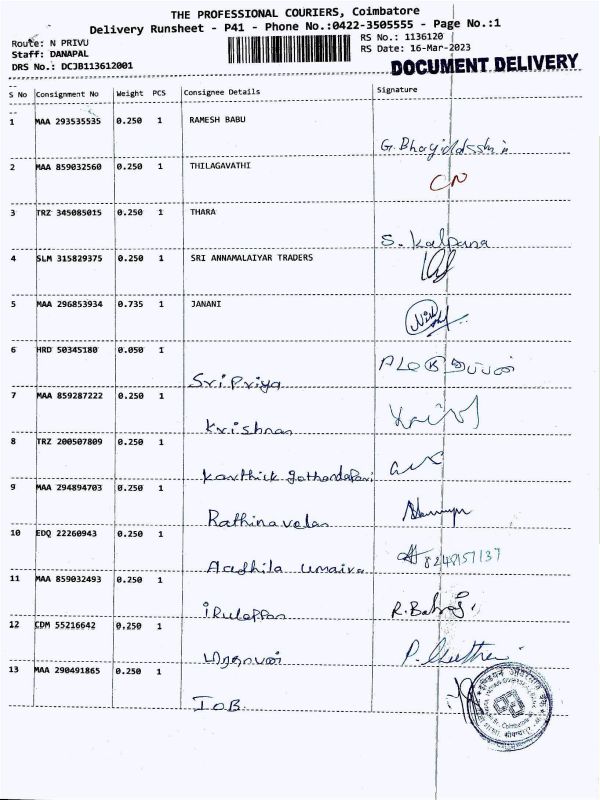 THE PROFESSIONAL COURIERS, Coimbatore
Delivery Runsheet - P41 - Phone No.:0422-3505555 - Page No.:1
Route: N PRIVU
RS No.: 1136120
Staff: DANAPAL
RS Date: 16-Mar-2023
DRS No.: DCJB113612001
DOCUMENT DELIVERY
S No Consignment No Weight PCS Consignee Details Signature
1 MAA 293535535 0.250 1 RAMESH BABU
2 MAA 859032560 0.250 1 THILAGAVATHI
3 TRZ 345085015 0.250 1 THARA
S. Kalpana
4 SLM 315829375 0.250 1 SRI ANNAMALAIYAR TRADERS
5 MAA 296853934 0.735 1 JANANI
6 HRD 50345180 0.050 1
Sri Priya
7 MAA 859287222 0.250 1
Krishnan
8 TRZ 200507809 0.250 1
Karthick
9 MAA 294894703 0.250 1
Rathinavelan
10 EDQ 22260943 0.250 1
8249157137
Aadhila umaiva
11 MAA 859032493 0.250 1
iRulappan
12 CDM 55216642 0.250 1
13 MAA 290491865 0.250 1
IOB